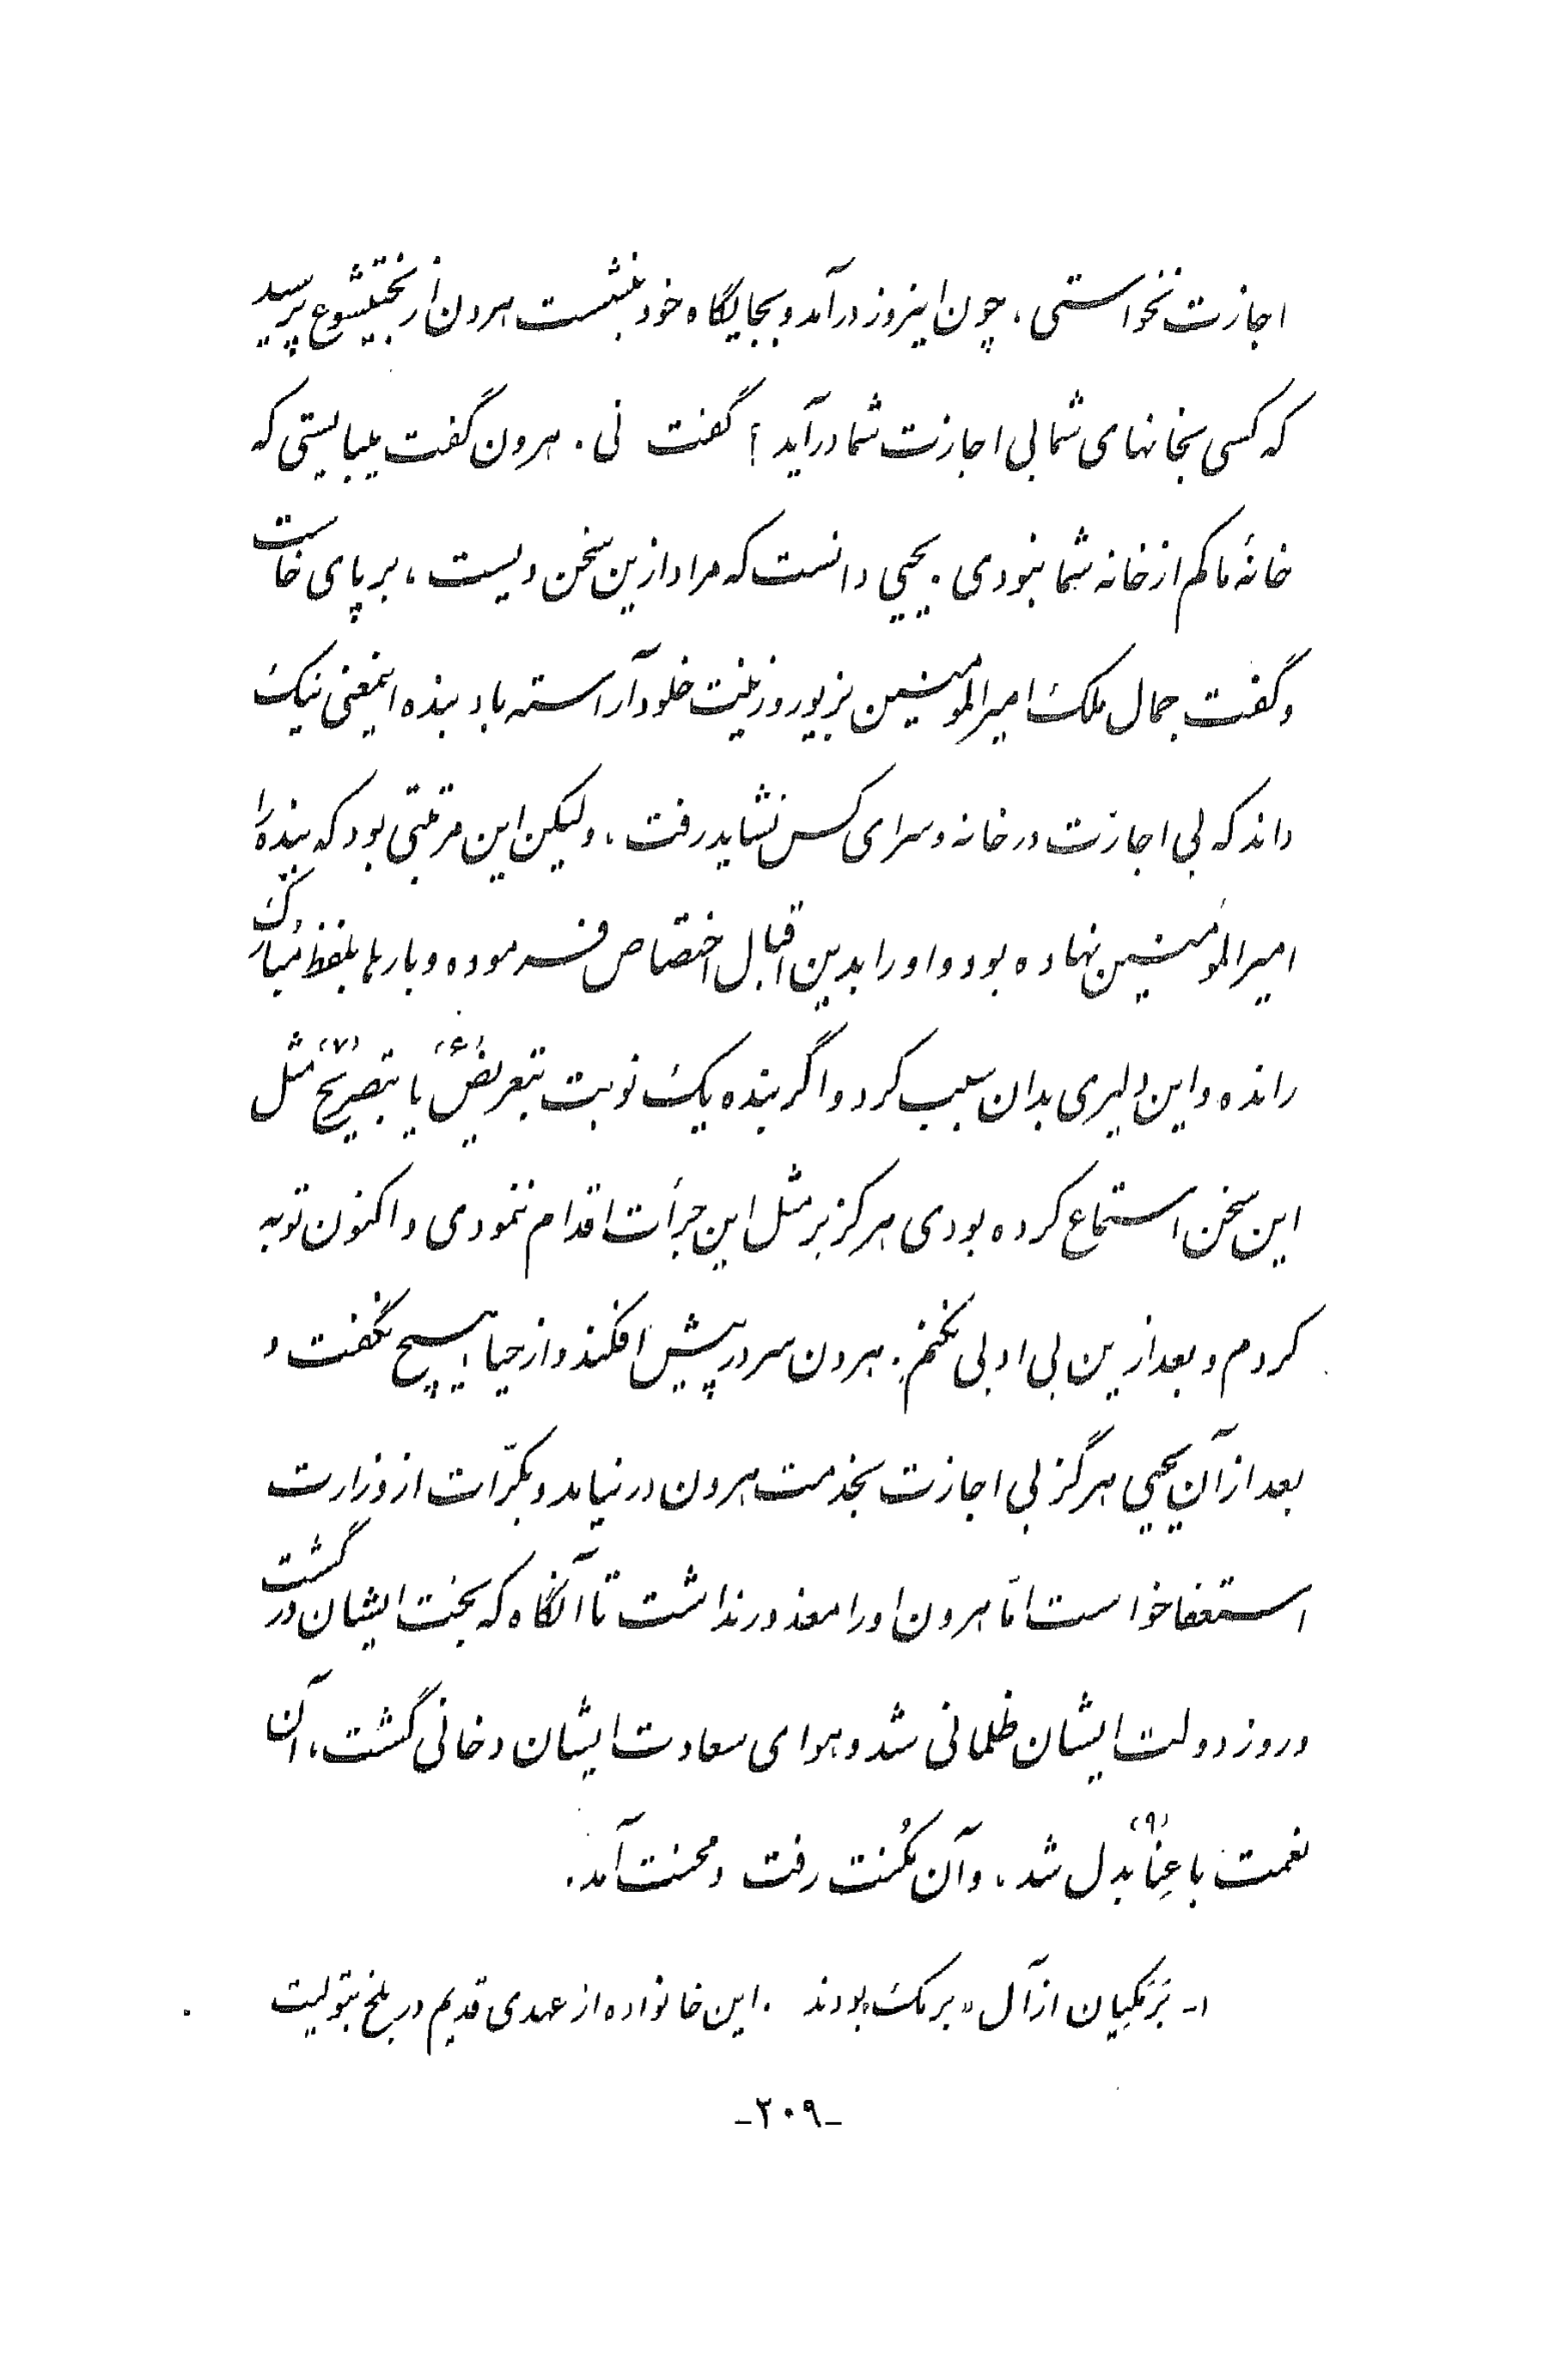 اجازت نخواستی، چون اینروز درآمد و بجایگاه خود بنشست هرون از بختیشوع پرسید
که کسی بخانهای شما بی اجازت شما درآید؟ گفت نی. هرون گفت میبایستی که
خانهٔ ما کم از خانه شما نبودی. یحیی دانست که مراد ازین سخن ویست، بر پای خاست
و گفت جمال ملک امیرالمؤمنین بزیور و زینت خلود آراسته باد بنده اینمعنی نیک
داند که بی اجازت در خانه و سرای کس نشاید رفت، ولیکن این مرتبتی بود که بنده را
امیرالمؤمنین نهاده بود و او را بدین اقبال اختصاص فرموده و بارها بلفظ مبارک
رانده و این دلیری بدان سبب کرد و اگر بنده یک نوبت بتعریض(۶) یا بتصریح(۷) مثل
این سخن استماع کرده بودی هرگز بر مثل این جرأت اقدام ننمودی و اکنون توبه
کردم و بعد ازین بی ادبی نکنم. هرون سر در پیش افکند و از حیا هیچ نگفت و
بعد از آن یحیی هرگز بی اجازت بخدمت هرون در نیامد و بکرّات از وزارت
استعفا خواست امّا هرون او را معذور نداشت تا آنگاه که بخت ایشان درگشت
و روز دولت ایشان ظلمانی شد و هوای سعادت ایشان دخانی گشت، آن
نعمت با عِنا(۹) بدل شد، و آن مُکنت رفت و محنت آمد.
۱- بَرمَکیان از آل «برمک» بودند. این خانواده از عهدی قدیم در بلخ بتولیت
-۲۰۹-